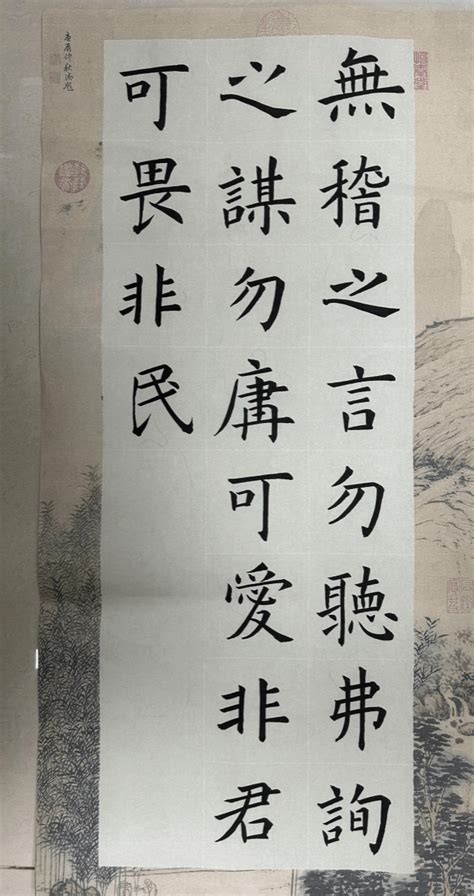 無稽之言勿聽弗詢
之謀勿庸可愛非君
可畏非民